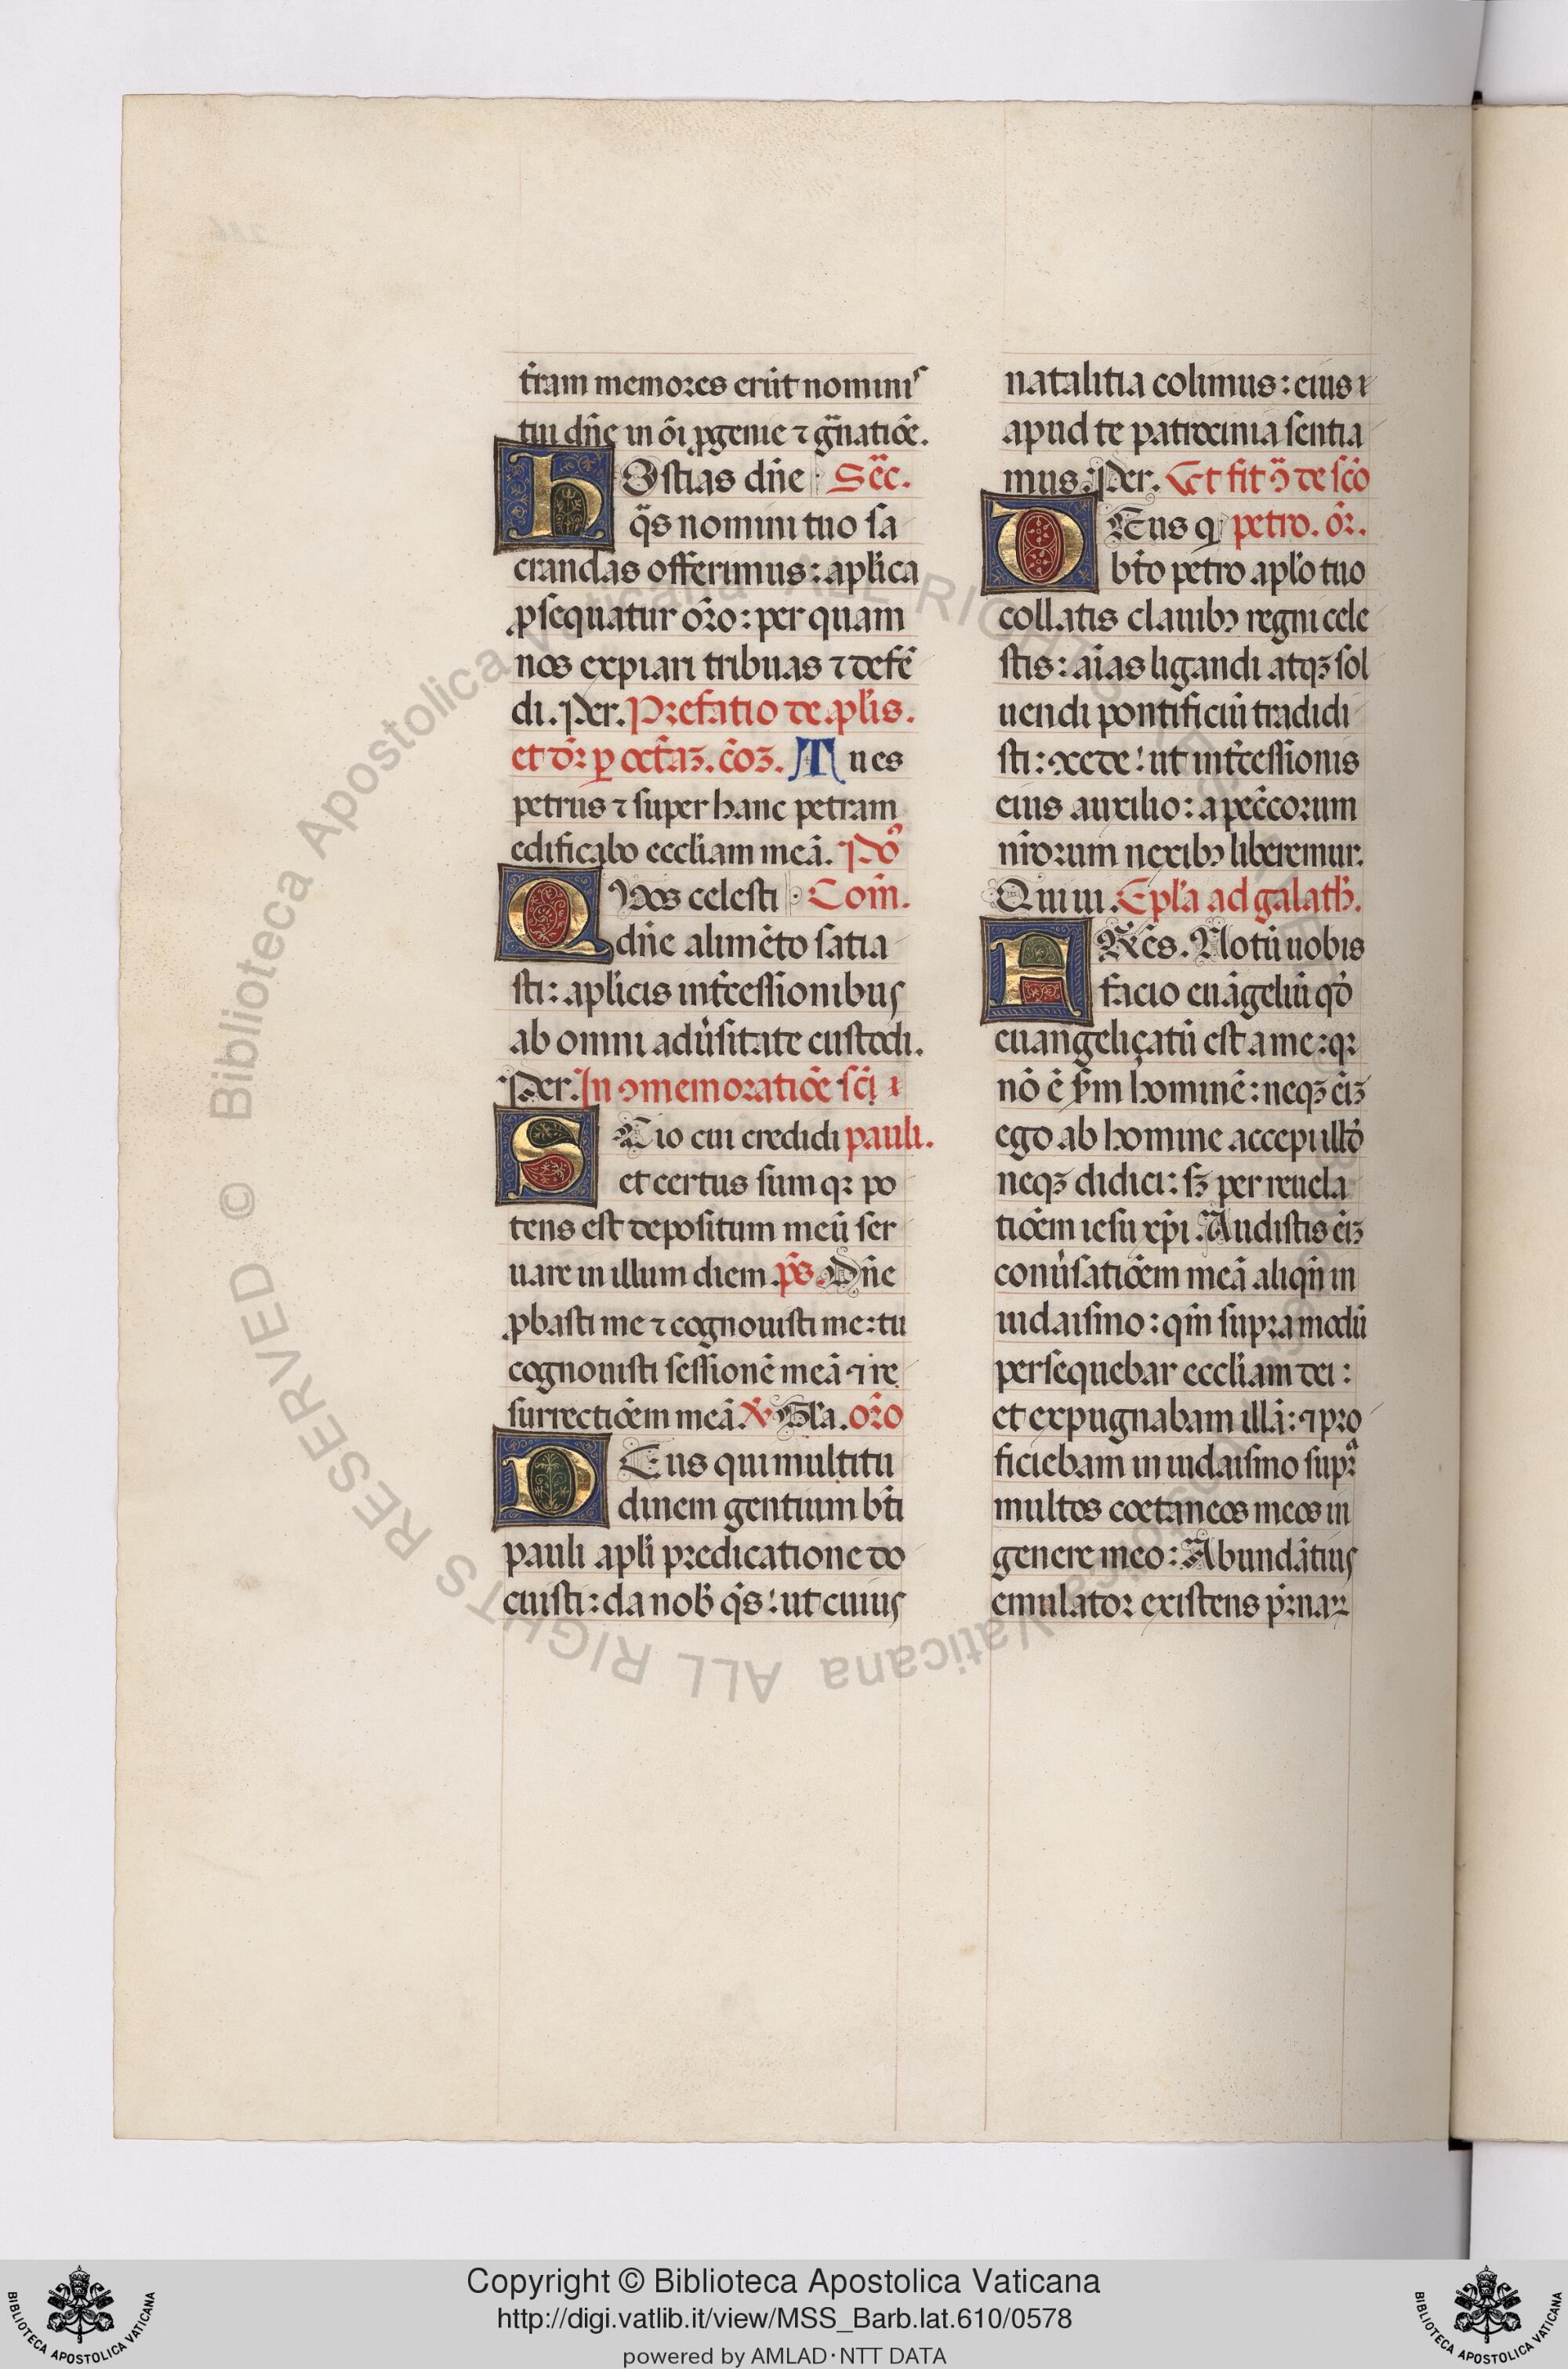 t̄ram memores erūt nominis
tui dn̄e in ōi ꝓgenie ⁊ gn̄atiōe.
hOstias dn̄e Sec̄.
qs̄ nomini tuo sa
crandas offerimus: aplica
ꝓsequatur or̄o: per quam
nos expiari tribuas ⁊ defē
di. Per. Prefatio de aplis.
et dr̄ ꝑ octaꝫ. c̄oꝫ. Tu es
petrus ⁊ super hanc petram
edificabo eccl̄iam meā. Po
QVos celesti Com̄.
dn̄e alimēto satia
sti: aplicis int̄cessionibus
ab omni adūsitate custodi.
Per. In ꝯmemoratiōe sc̄i
SCio cui credidi pauli.
et certus sum qꝛ po
tens est depositum meū ser
uare in illum diem. ps̄ Dn̄e
ꝓbasti me ⁊ cognouisti me: tu
cognouisti sessionē meā ⁊ re
surrectiōem meā. V̄ Gl̄a. or̄o
DEus qui multitu
dinem gentium bt̄i
pauli apl̄i predicatione do
cuisti: da nob̄ qs̄: ut cuius
natalitia colimus: eius
apud te patrocinia sentia
mus. Per. Et fit ꝯ̄ de sc̄o
DEus q petro. or̄.
bt̄o petro apl̄o tuo
collatis clauibꝰ regni cele
stis: aīas ligandi atqꝫ sol
uendi pontificiū tradidi
sti: ꝯcede: ut int̄cessionis
eius auxilio: a pecc̄orum
nr̄orum nexibꝰ liberemur.
Qui ui. Epl̄a ad galath̄.
FRēs. Notū uobis
facio euāgeliū qd̄
euangelicatū est a me: qꝛ
nō ē sm̄ hominē: neqꝫ ēiꝫ
ego ab homine accepi illd̄
neqꝫ didici: sꝫ per reuela
tiōem iesu xp̄i. Audistis ēiꝫ
conūsatiōem meā aliqn̄ in
iudaismo: qm̄ supra modū
persequebar eccl̄iam dei:
et expugnabam illā: ⁊ pro
ficiebam in iudaismo supra
multos coetaneos meos in
genere meo: Abundātius
emulator existens pr̄naꝝ
Biblioteca Apostolica Vaticana ALL RIGHTS RESERVED ©
Copyright © Biblioteca Apostolica Vaticana
http://digi.vatlib.it/view/MSS_Barb.lat.610/0578
powered by AMLAD·NTT DATA
BIBLIOTECA APOSTOLICA VATICANA
BIBLIOTECA APOSTOLICA VATICANA